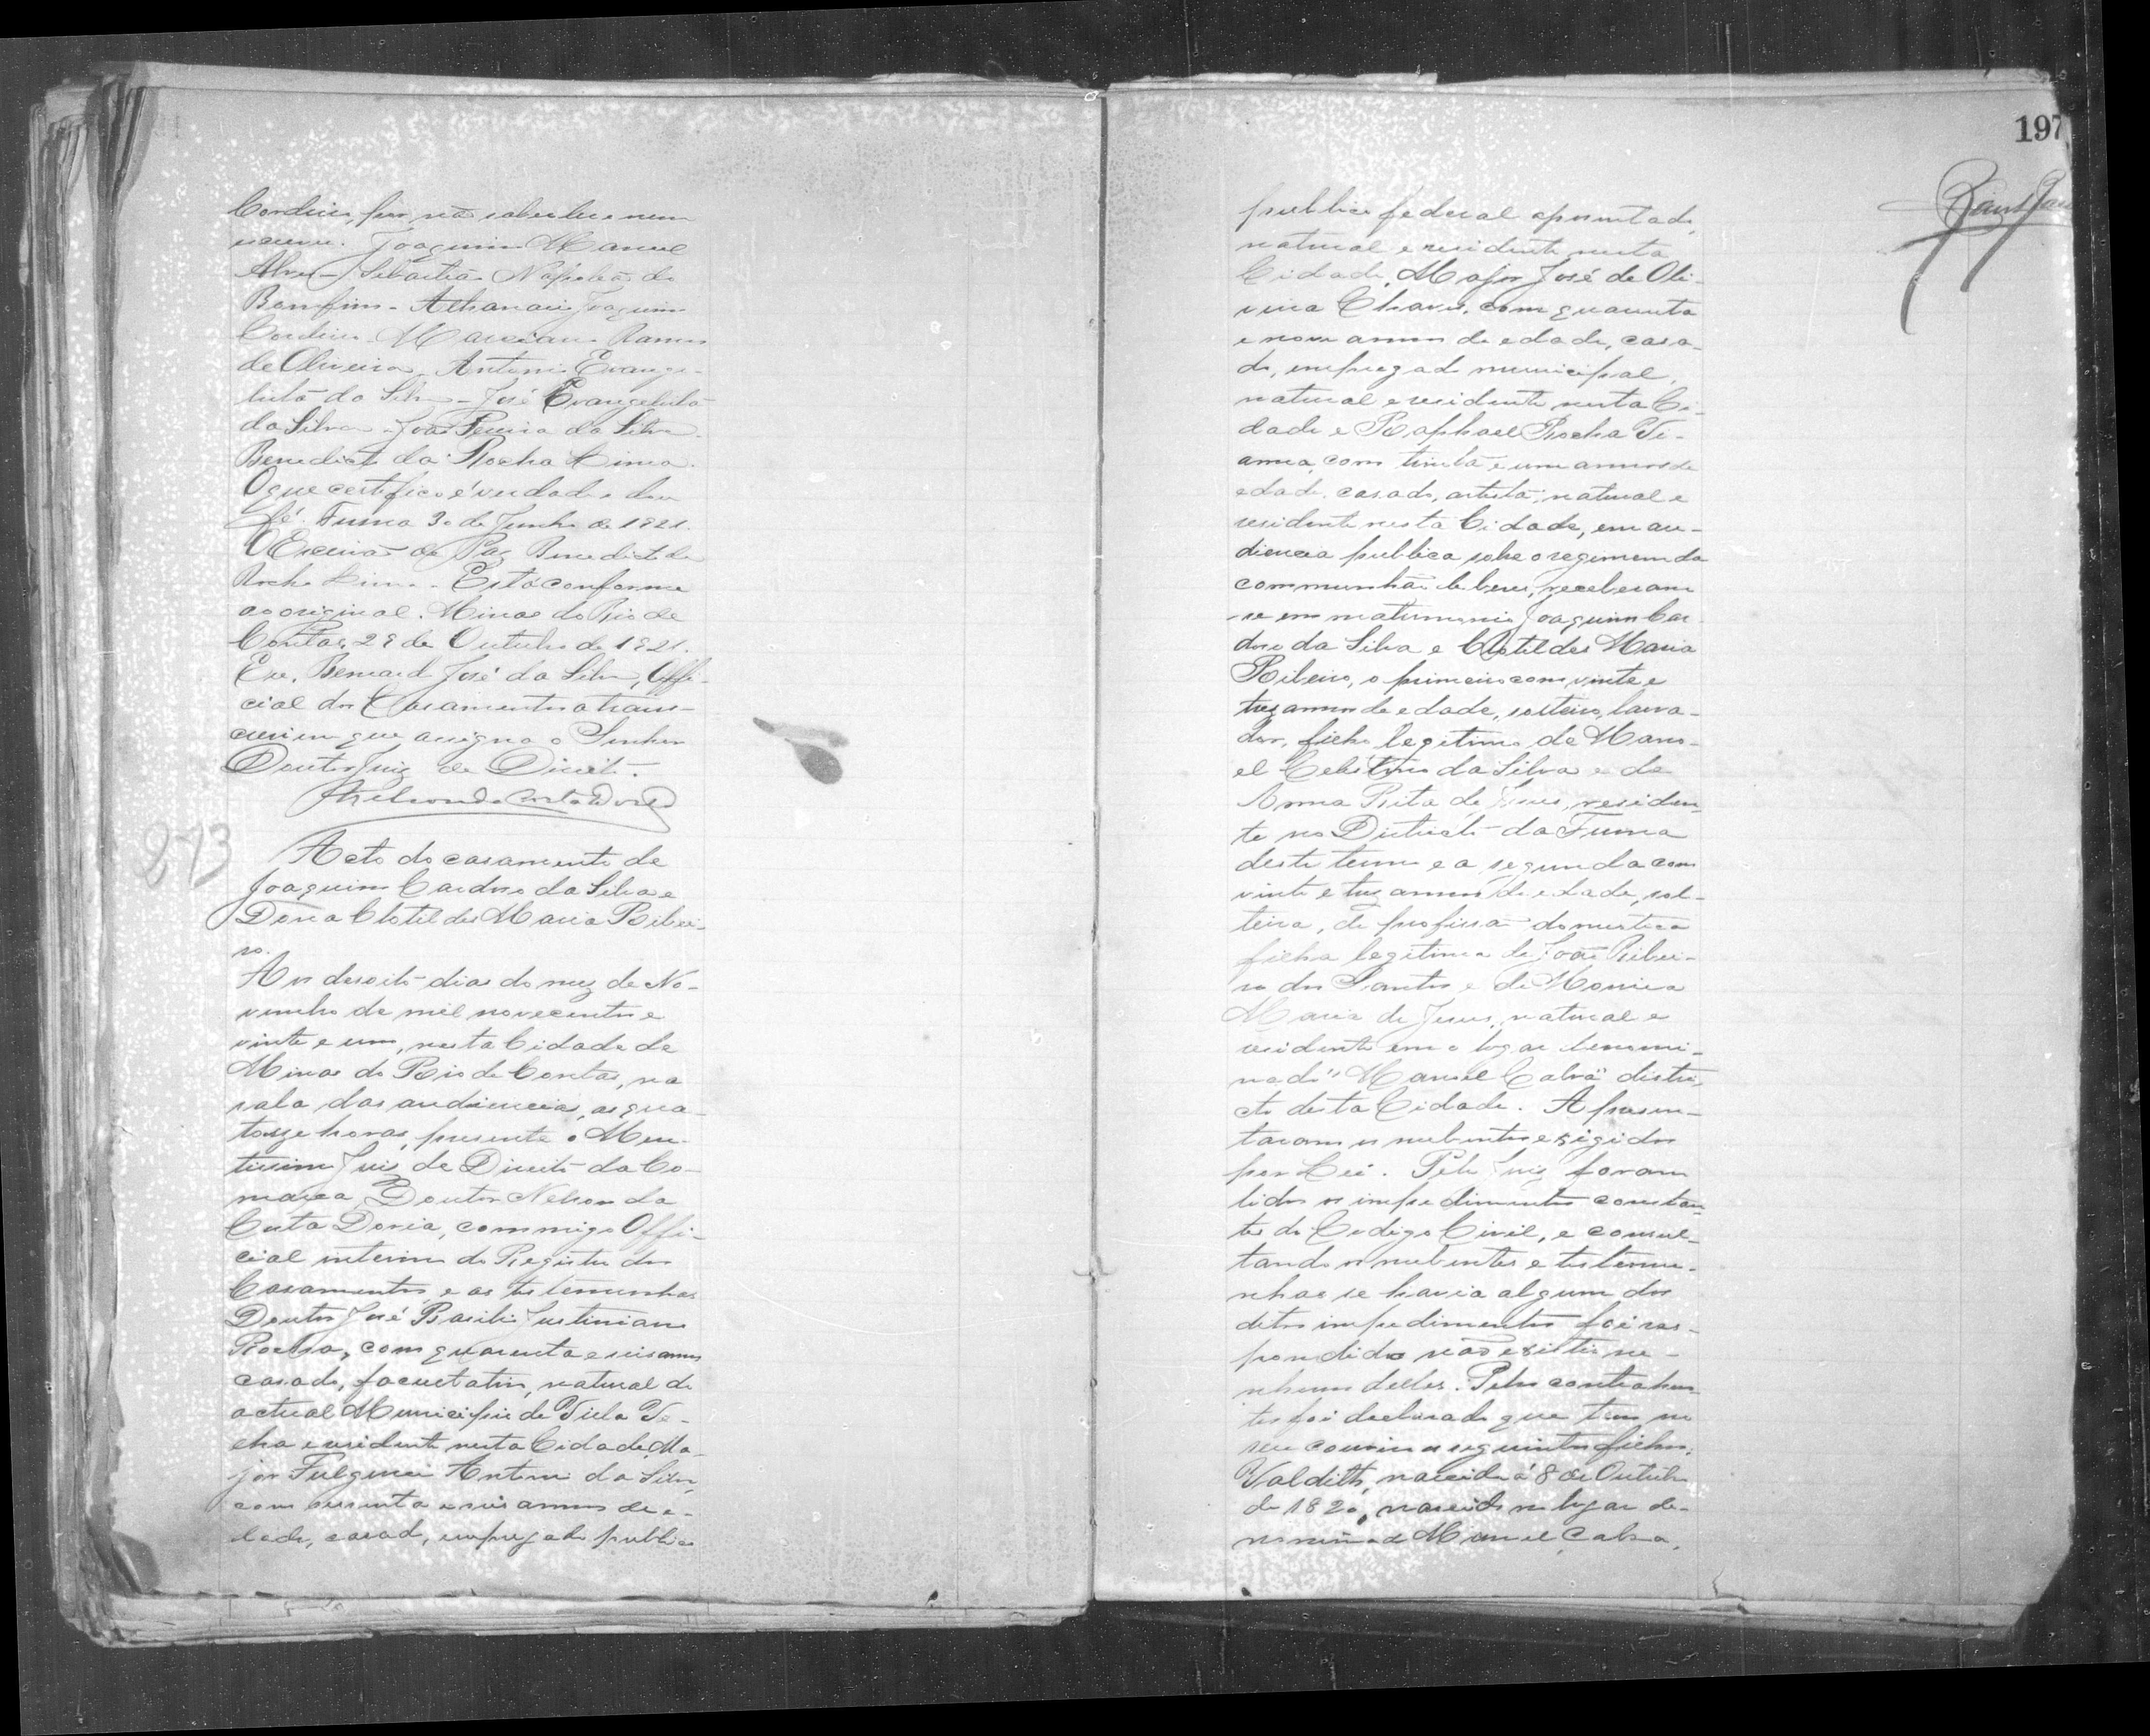 Cordeiro, por não saber ler e nem
escrever. Joaquim Manuel
Alves - Sebastião Napoleão do
Bomfim - Athanasio Joaquim
Cordeiro. Marciano Ramos
de Oliveira, Antonio Evange-
lista da Silva - José Evangelista
da Silva - João Pereira da Silva.
Benedicto da Rocha Lima.
O que certifico é verdade e dou
fé. Furna 30 de Junho de 1921.
O Escrivão de Paz Benedicto da
Rocha Lima - Está conforme
ao original. Minas do Rio de
Contas, 29 de Outubro de 1921.
Eu, Bernard José da Silva, Offi-
cial dos Casamentos a trans-
crevi em que assigna o Senhor
Doutor Juiz de Direito.
Nelson da Costa Doria
273
Acto do casamento de
Joaquim Cardoso da Silva e
Dona Clotildes Maria Ribei-
ro.
Aos desoito dias do mez de No-
vembro de mil novecentos e
vinte e um, nesta Cidade de
Minas do Rio de Contas, na
sala das audiencias, as qua-
torze horas, presente o Meri-
tissimo Juiz de Direito da Co-
marca, Doutor Nelson da
Costa Doria, commigo Offi-
cial interino do Registro dos
Casamentos, e as testemunhas
Doutor José Basilio Justiniano
Rocha, com quarenta e seis annos
casado, facultativo, natural do
actual Municipio de Villa Ve-
lha e residente nesta Cidade, Ma-
jor Fulgencio Antonio da Silva,
com sessenta e seis annos de e-
dade, casado, empregado publico
197
publico federal aposentado,
natural e residente nesta
Cidade, Major José de Oli-
veira Chaves, com quarenta
e nove annos de edade, casa-
do, empregado municipal,
natural e residente nesta Ci-
dade e Raphael Rocha Vi-
anna, com trinta e um annos de
edade, casado, artista, natural e
residente nesta Cidade, em au-
diencia publica sobre o regimen da
communhão de bens, receberam
-se em matrimonio Joaquim Car-
doso da Silva e Clotildes Maria
Ribeiro, o primeiro com vinte e
trez annos de edade, solteiro, lavra-
dor, filho legitimo de Mano-
el Celestino da Silva e de
Anna Rita de Jesus, residen-
te no Districto da Furna
deste termo e a segunda com
vinte e trez annos de edade, sol-
teira, de profissão domestica
filha legitima de João Ribei-
ro dos Santos e de Monica
Maria de Jesus, natural e
residente em o logar denomi-
nado "Manoel Calvo" distri-
cto desta Cidade. Apresen-
taram os nubentes exigidos
por Lei. Pelo Juiz foram
lidos os impedimentos constan-
tes do Codigo Civil, e consul-
tando os nubentes e testemu-
nhas se havia algum dos
ditos impedimentos foi res-
pondido não existir ne-
nhum delles. Pelos contrahen-
tes foi declarado que tem no
seu os seguintes filhos:
Valdith, nascida á 8 de Outubro
de 1820, nascida no lugar de-
nominado Manuel Calvo,